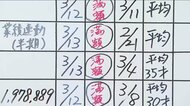 3/12 満額 3/11 平均
業績連動 3/12 満額 2/21 平均
(半期)
3/13 満額 3/4 平均
35才
1,978,889 3/12 満額 3/8 平均
30才